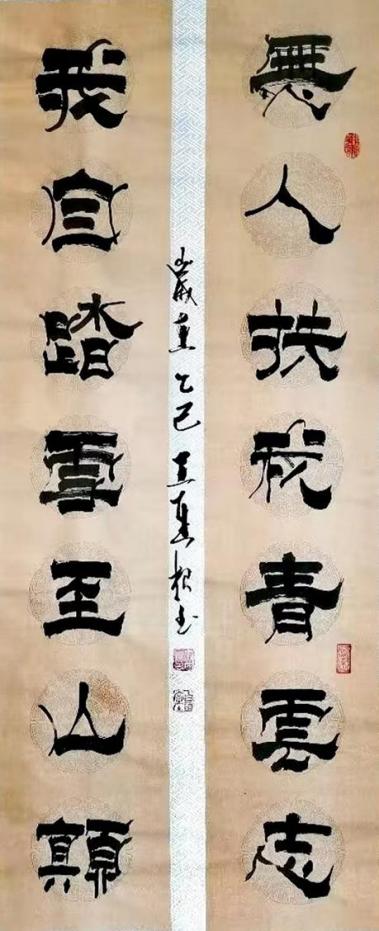 無人扶我青雲志
我自踏雪至山顛
歲在乙巳王